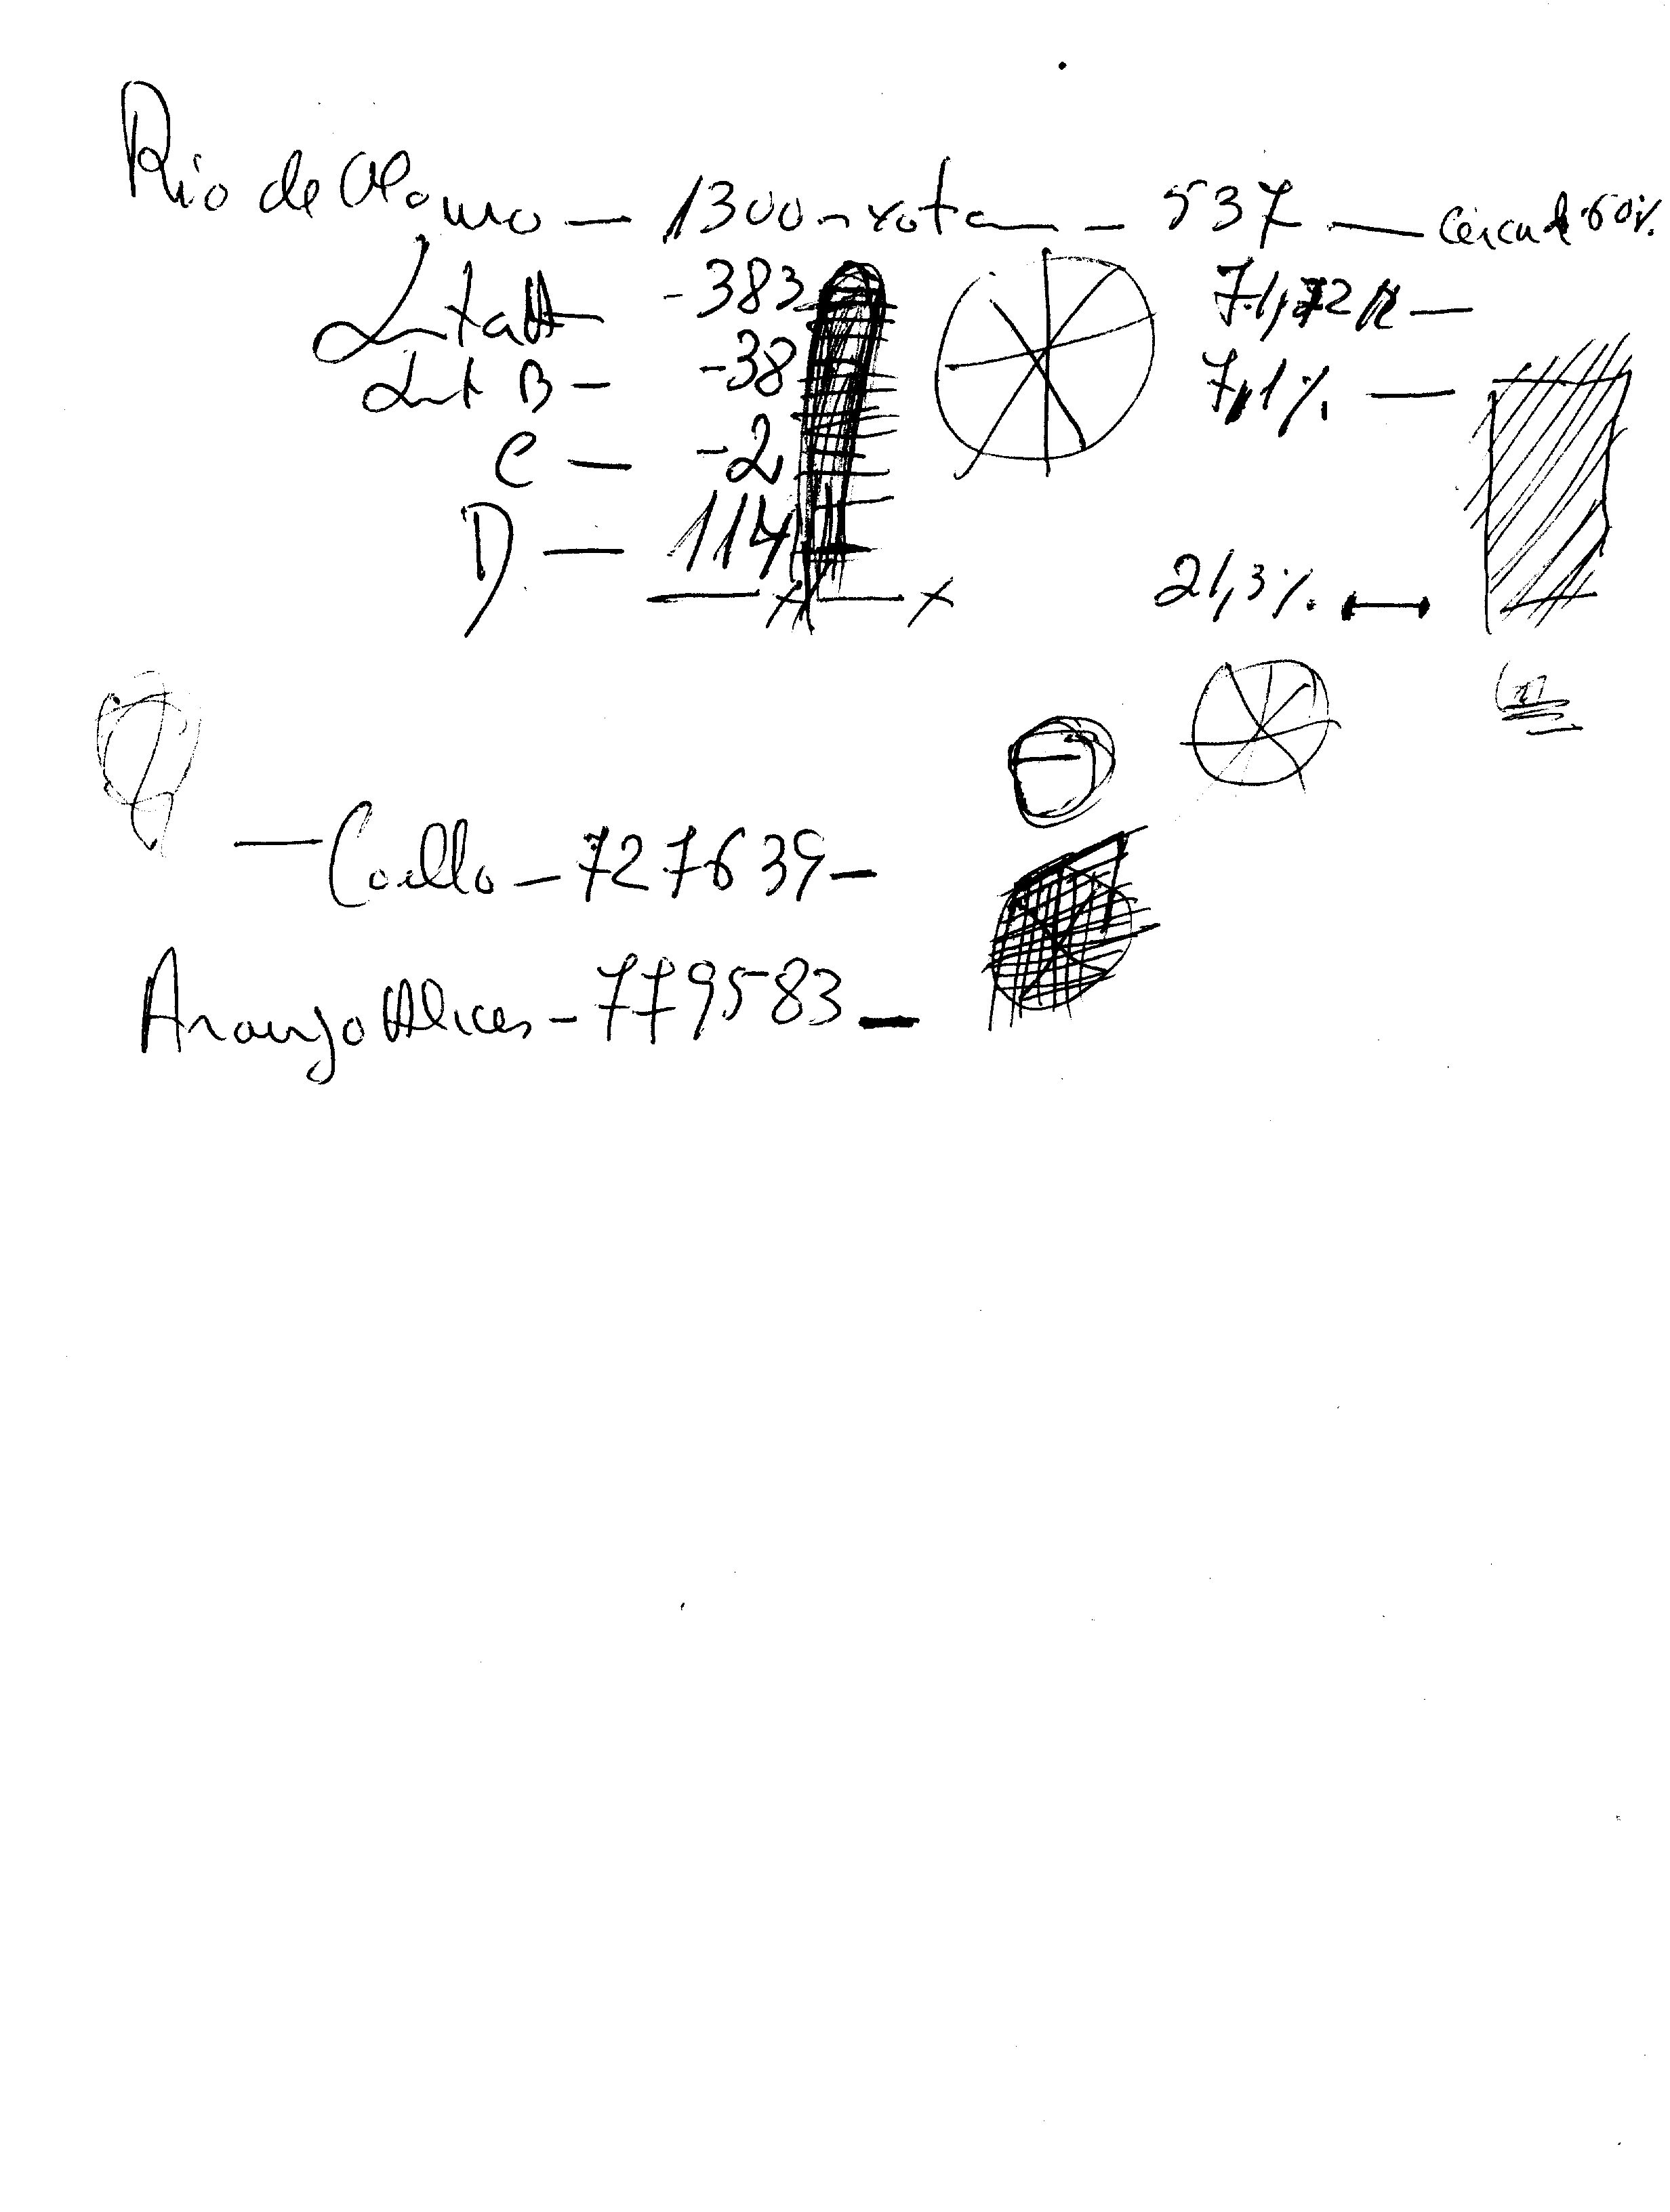 Rio de Mouro — 1300 - vota — - 537 — cerca de 60%.
Lista A — - 383 71,32% —
List B — - 38 7,1% —
C — - 2
D — 114 21,3%.
— x — x
— Coelho — 727639 —
Araujo Alices - 779583 —